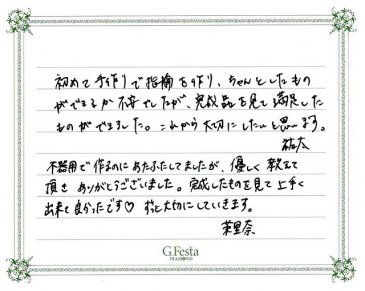 初めて手作りで指輪を作り、ちゃんとしたもの
ができるか不安でしたが、完成品を見て満足した
ものができました。これから大切にしたいと思います。
祐太
不器用で作るのにあたふたしてましたが、優しく教えて
頂き ありがとうございました。完成したものを見て上手く
出来て良かったです♡ ずっと大切にしていきます。
茉里奈
G.Festa
DIAMOND